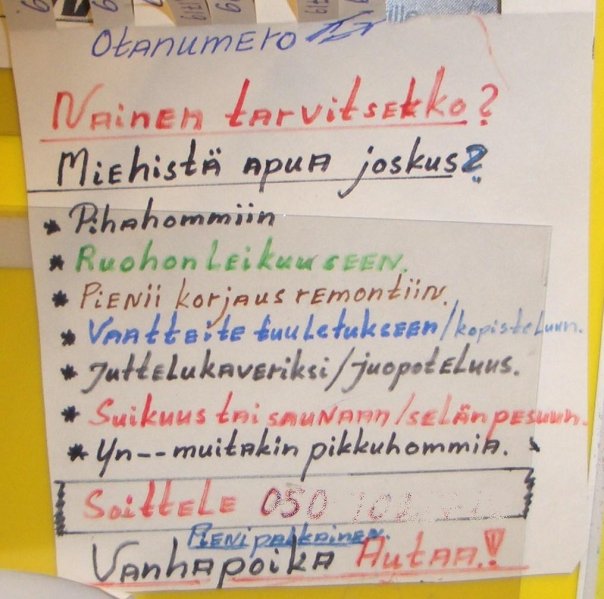 Otanumero
Nainen tarvitsekko?
Miehistä apua joskus?
* Pihahommiin
* Ruohonleikuuseen.
* Pienii korjausremontiin.
* Vaatteite tuuletukseen/kopisteluun.
* Juttelukaveriksi/juopoteluus.
* Suikuus tai saunaan/selänpesuun.
* Yn-- muitakin pikkuhommia.
Soittele 050
Pienipalkkainen.
Vanhapoika Autaa!